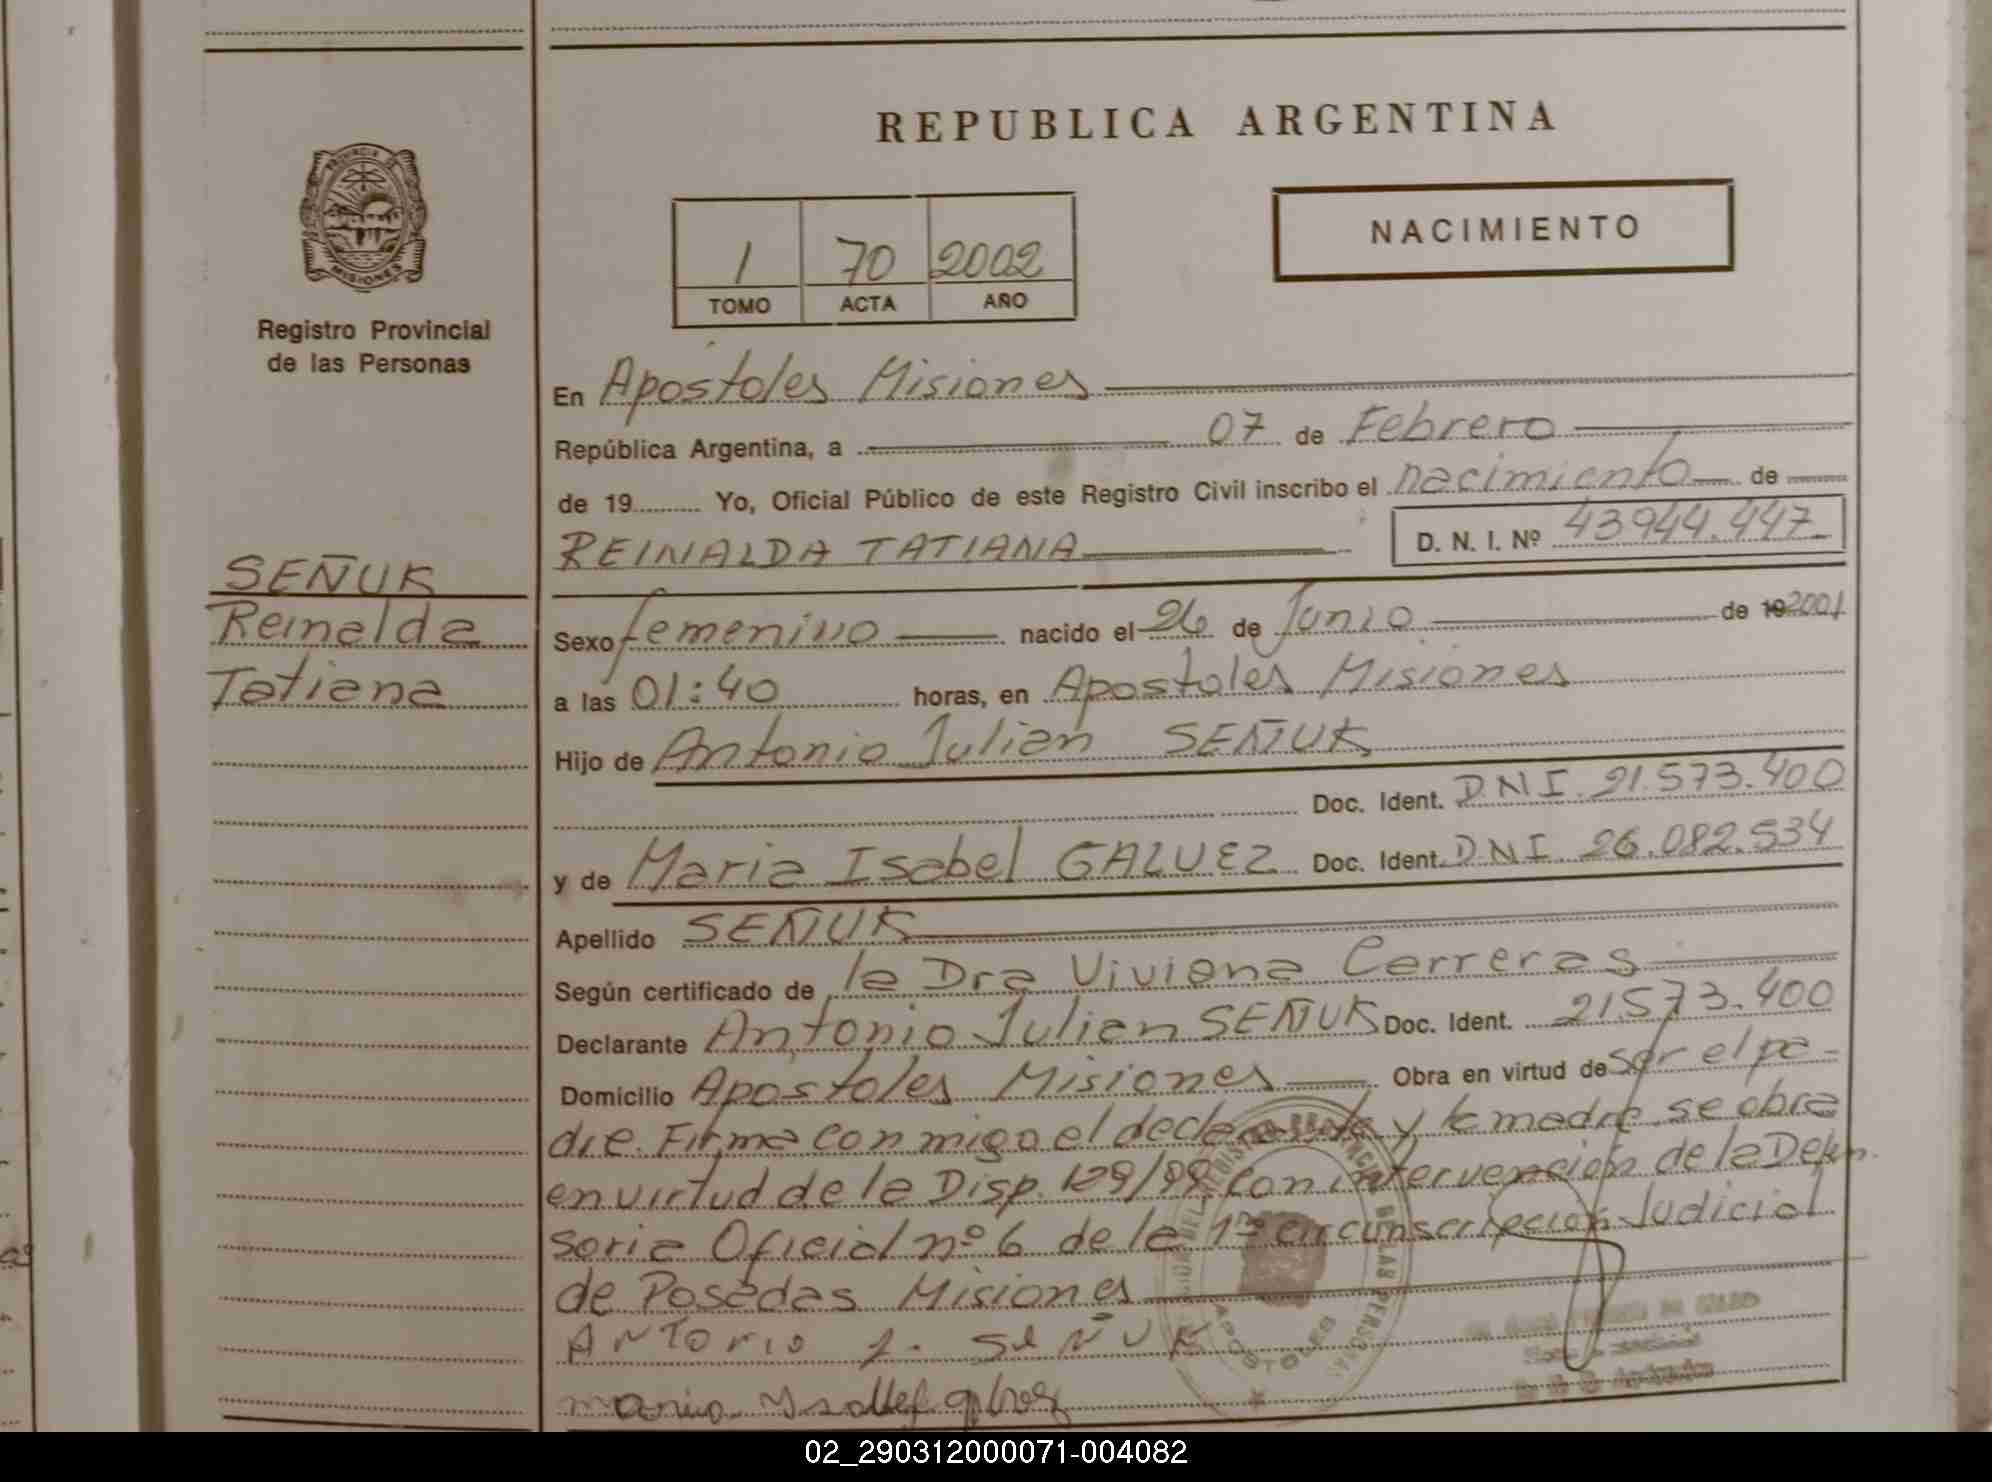 REPUBLICA ARGENTINA
PROVINCIA DE
MISIONES
Registro Provincial
de las Personas
NACIMIENTO
1 70 2002
TOMO ACTA AÑO
En Apostoles Misiones
República Argentina, a 07 de Febrero
de 19 Yo, Oficial Público de este Registro Civil inscribo el nacimiento de
REINALDA TATIANA D. N. I. Nº 43944.447
SEÑUK
Reinalda
Tatiana
Sexo femenino nacido el 26 de Junio de 19 2001
a las 01:40 horas, en Apostoles Misiones
Hijo de Antonio Julian SEÑUK
Doc. Ident. DNI. 21.573.400
y de Maria Isabel GALVEZ Doc. Ident. DNI. 26.082.534
Apellido SEÑUK
Según certificado de la Dra Viviana Carreras
Declarante Antonio Julian SEÑUK Doc. Ident. 21.573.400
Domicilio Apostoles Misiones Obra en virtud de ser el pa-
dre. Firma conmigo el declarante y la madre. se obra
en virtud de la Disp. 129/99. con intervención de la Defen
soria Oficial nº 6 de la 1ra circunscripcion Judicial
de Posadas Misiones
Antonio J. SEÑUK
maria Ysabel
APOSTOLES
02_290312000071-004082